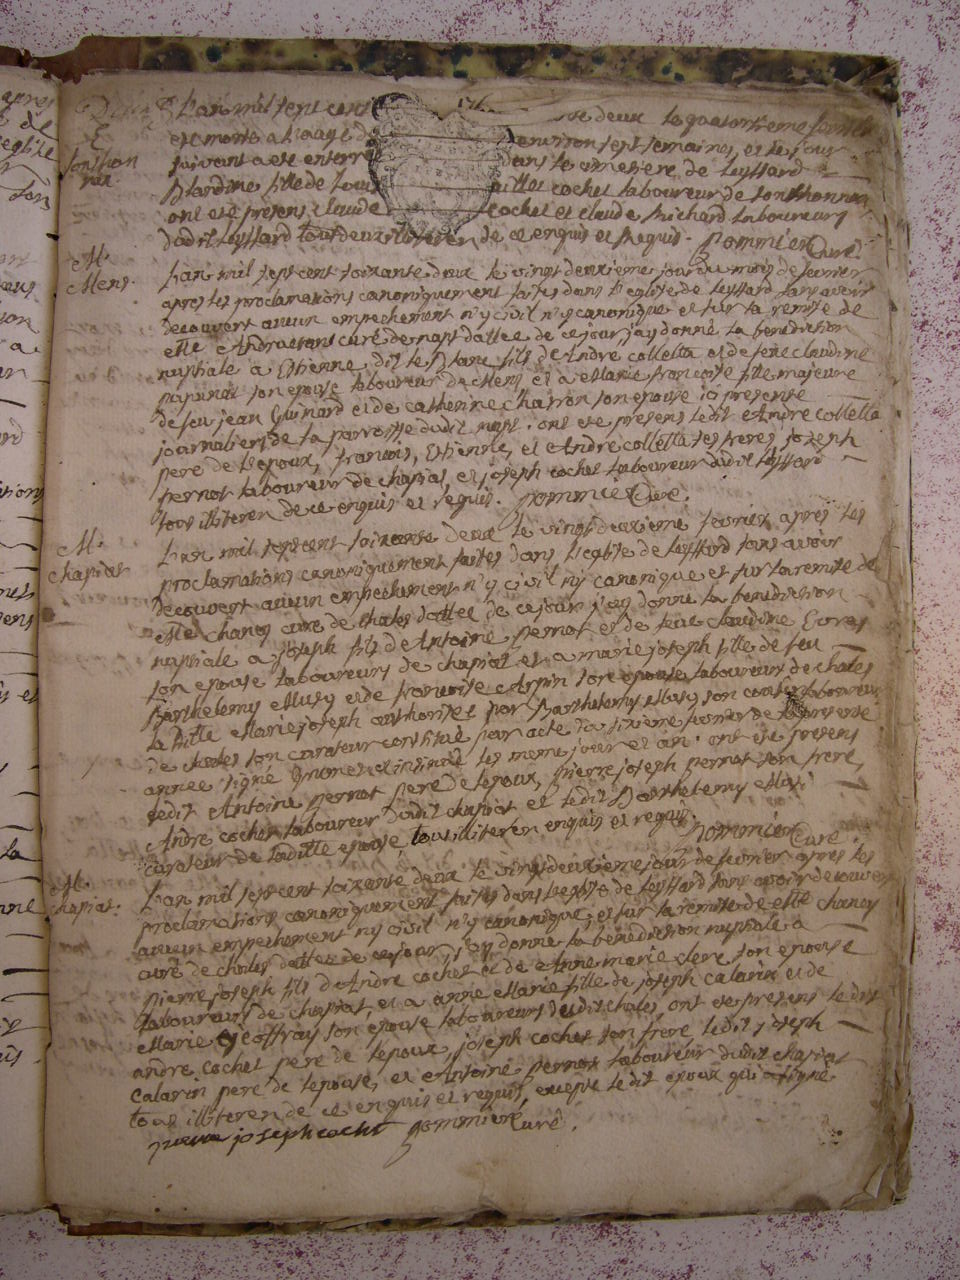 L'an mil sept cent deux le quatorzieme fevrier
est morte a l'aage d environ sept semaines, et le jour
sonthon
nax
suivant a ete enterré dans le cimetiere de leyssard
Blandine fille de cochet laboureur de sonthonnax
ont eté presens Claude cochet et Claude Michard laboureurs
dudit leyssard tous deux illiteren de ce enquis et Requis. Pommier Curé
M.
Mens.
L'an mil sept cent soixante deux le vingt deuxieme jour du mois de fevrier
apres les proclamations canoniquement faites dans l'eglise de leyssard sans avoir
decouvert aucun empechement n'y civil n'y canonique et sur la remise de
Mre curé de dattée de ce jour, j'ay donné la benediction
nuptiale a Etienne, dit le Blanc fils de André colletta et de feue claudine
son epouse laboureur de Mens et a Marie francoise fille majeure
de feu jean Guinard et de catherine Charron son epouse ici presente
journaliers de la parroisse dudit ont eté presens ledit André colletta
pere de lepoux, francois, Etienne, et André colletta ses freres, joseph
pernot laboureur de chapiat, et joseph cochet laboureur dudit leyssard
tous illiteren de ce enquis et requis. pommier Curé.
M.
chapiat
L'an mil sept cent soixante deux le vingt deuxieme fevrier apres les
proclamations canoniquement faites dans l'eglise de leyssard sans avoir
decouvert aucun empechement n'y civil n'y canonique et sur la remise de
Mre chaney curé de chales dattée de ce jour j'ay donné la benediction
nuptiale a joseph fils d'Antoine pernot et de feue claudine
son epouse laboureurs de chapiat et a marie joseph fille de feu
Barthelemy Musy et de francoise Arpin son epouse laboureurs de chales
la ditte Marie joseph authorisée par Barthelemy Musy son laboureur
de chales son curateur constitué par acte du sixieme fevrier de la presente
année signé et insinué les meme jour et an. ont eté presens
ledit Antoine pernot pere de lepoux, pierre joseph pernot son frere,
André cochet laboureur dudit chapiat et ledit Barthelemy Musy
curateur de laditte epouse tous illiteren enquis et requis. Pommier Curé
M.
chapiat.
L'an mil sept cent soixante deux le vingt deuxieme jour de fevrier apres les
proclamations canoniquement faites dans l'eglise de leyssard sans avoir decouvert
aucun empechement n'y civil n'y canonique, et sur la remise de Mre chaney
curé de chales dattée de ce jour, j'ay donné la benediction nuptiale a
pierre joseph fils d'André cochet et de Anne marie clerc son epouse
laboureurs de chapiat, et a anne Marie fille de joseph calarin et de
Marie Geoffray son epouse laboureurs dudit chales, ont eté presens ledit
andré cochet pere de lepoux joseph cochet son frere, ledit joseph
calarin pere de lepouse, et Antoine pernot laboureur dudit chapiat
tous illiteren de ce enquis et requis, excepté ledit epoux qui a signé
joseph cochet pommier Curé.